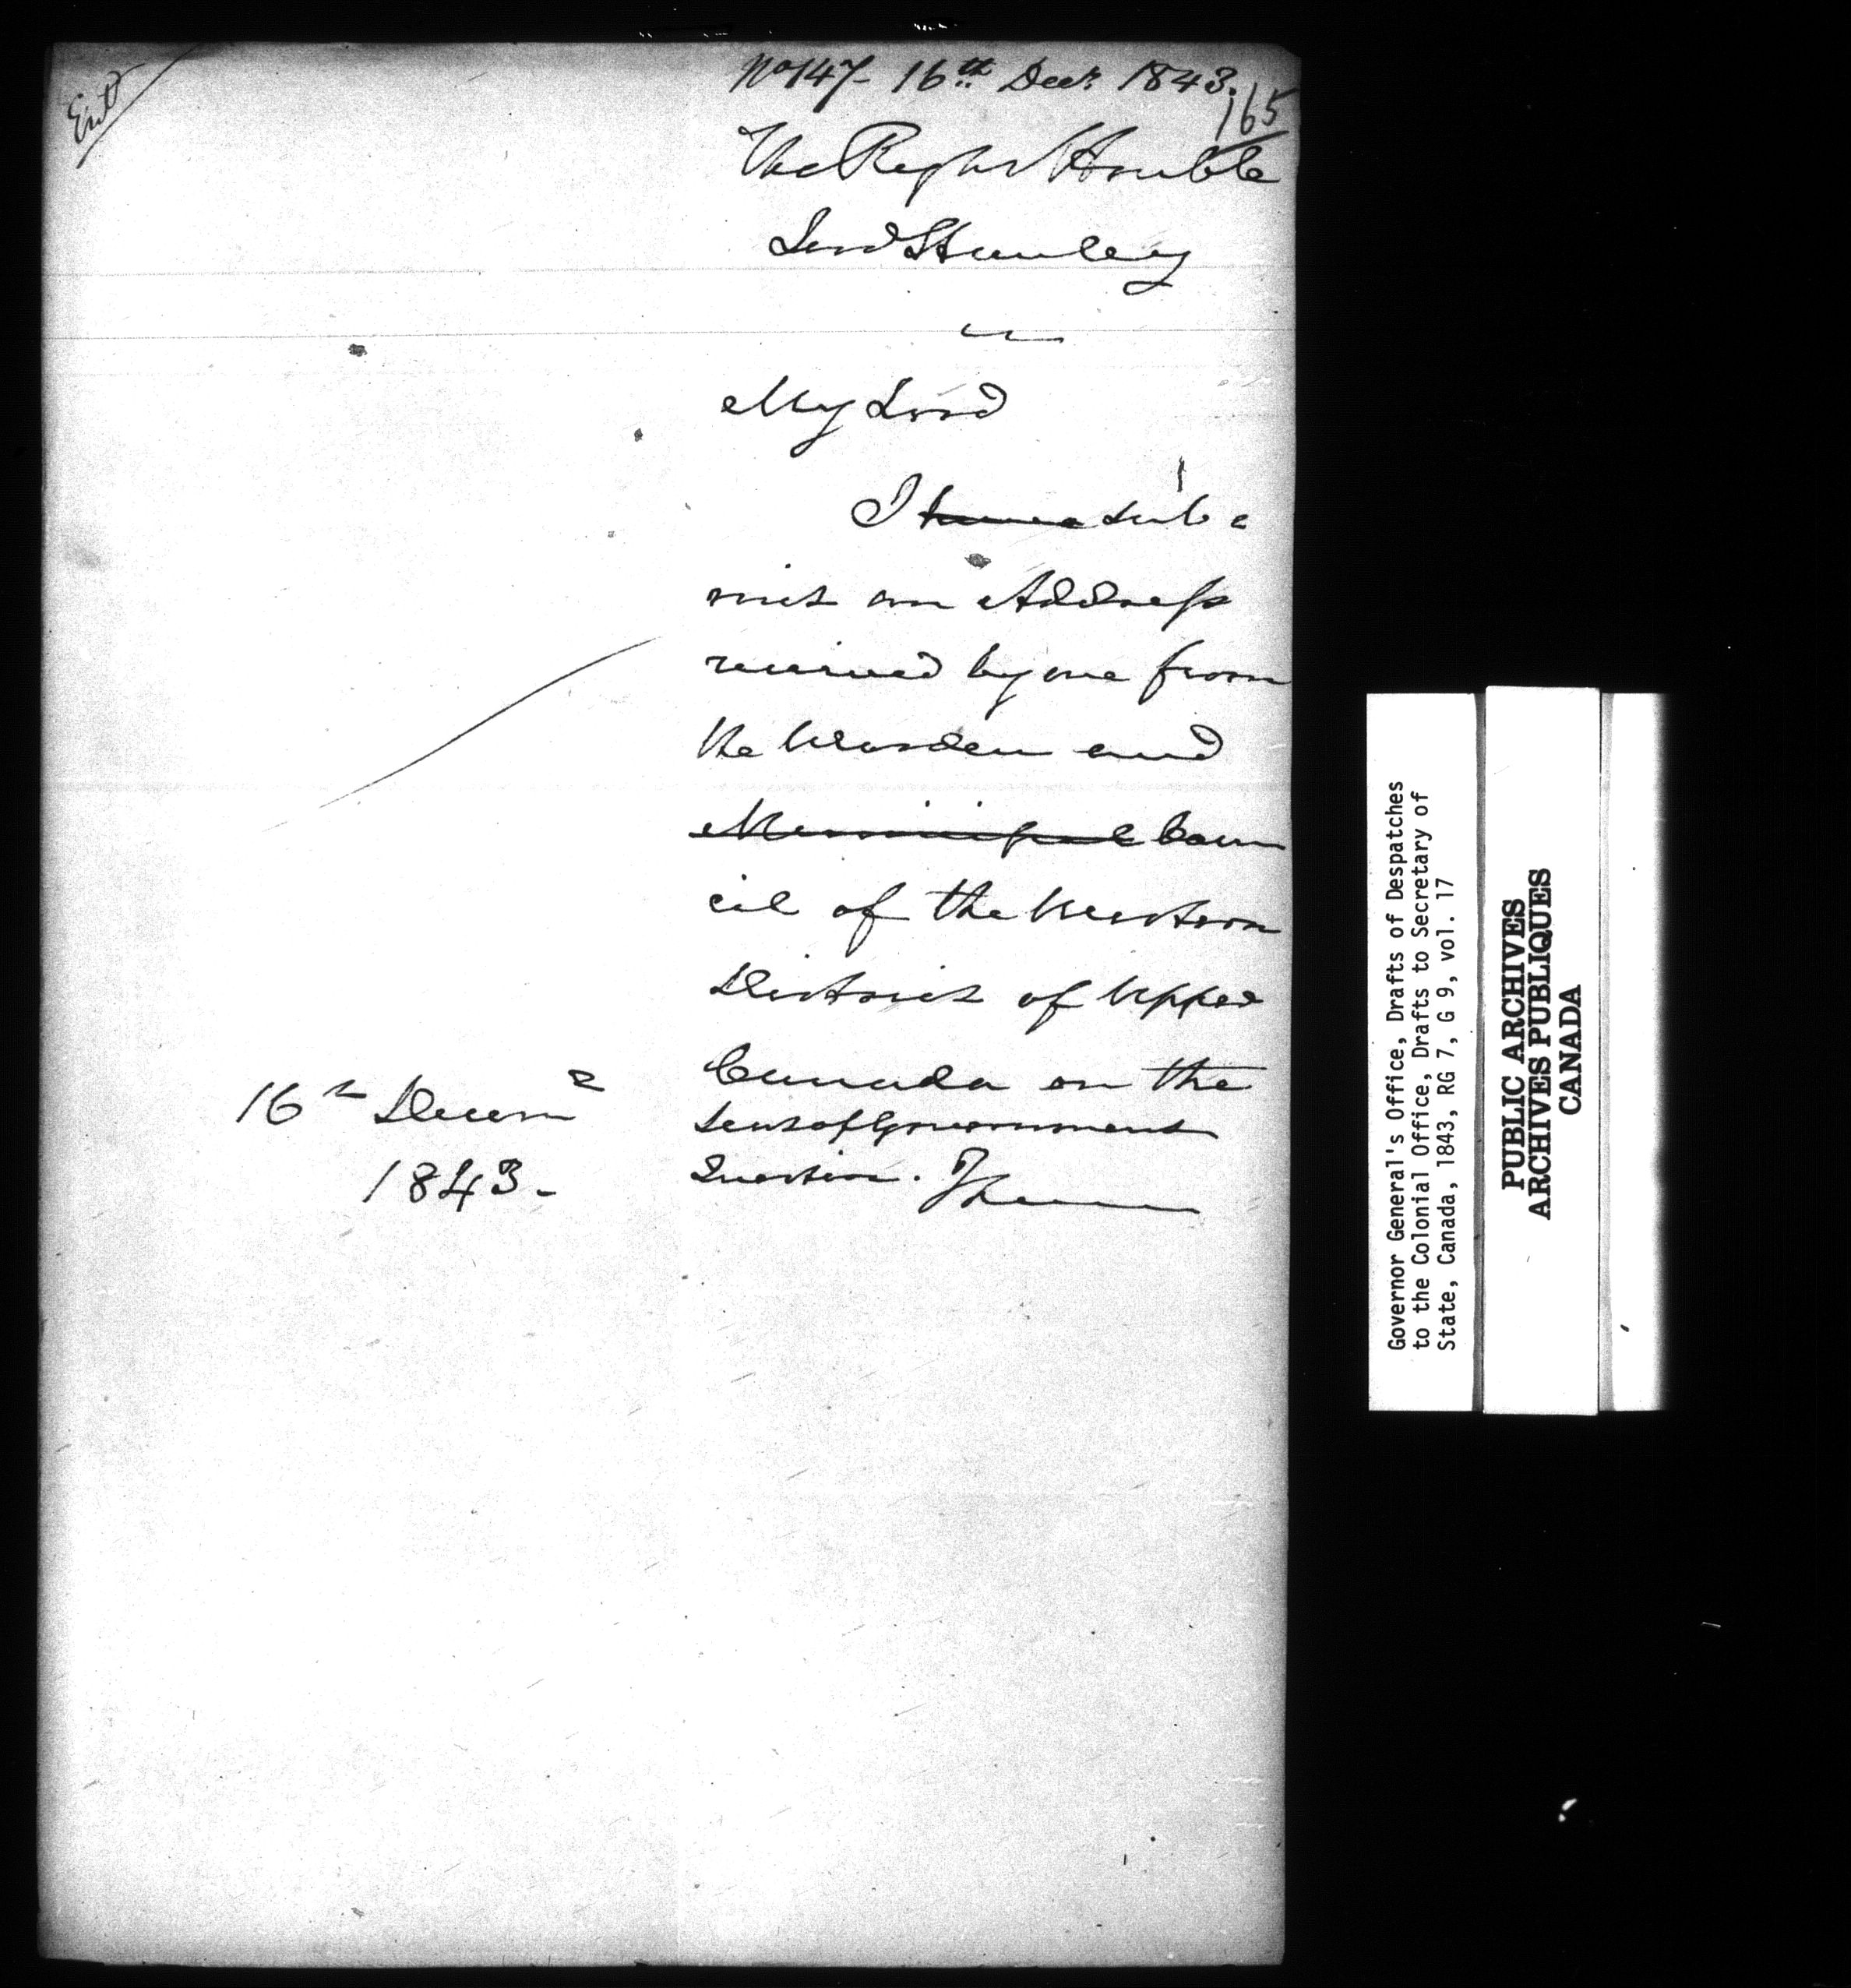 Entd
No 147- 16th Decr 1843.
165
The Right Honble
Lord Stanley
My Lord
I have sub
mit an Address
received by me from
the Warden and
Municipal Coun
cil of the Western
District of Upper
Canada on the
Seat of Government
Question. I have
16th Decemr
1843.-
Governor General's Office, Drafts of Despatches
to the Colonial Office, Drafts to Secretary of
State, Canada, 1843, RG 7, G 9, vol. 17
PUBLIC ARCHIVES
ARCHIVES PUBLIQUES
CANADA